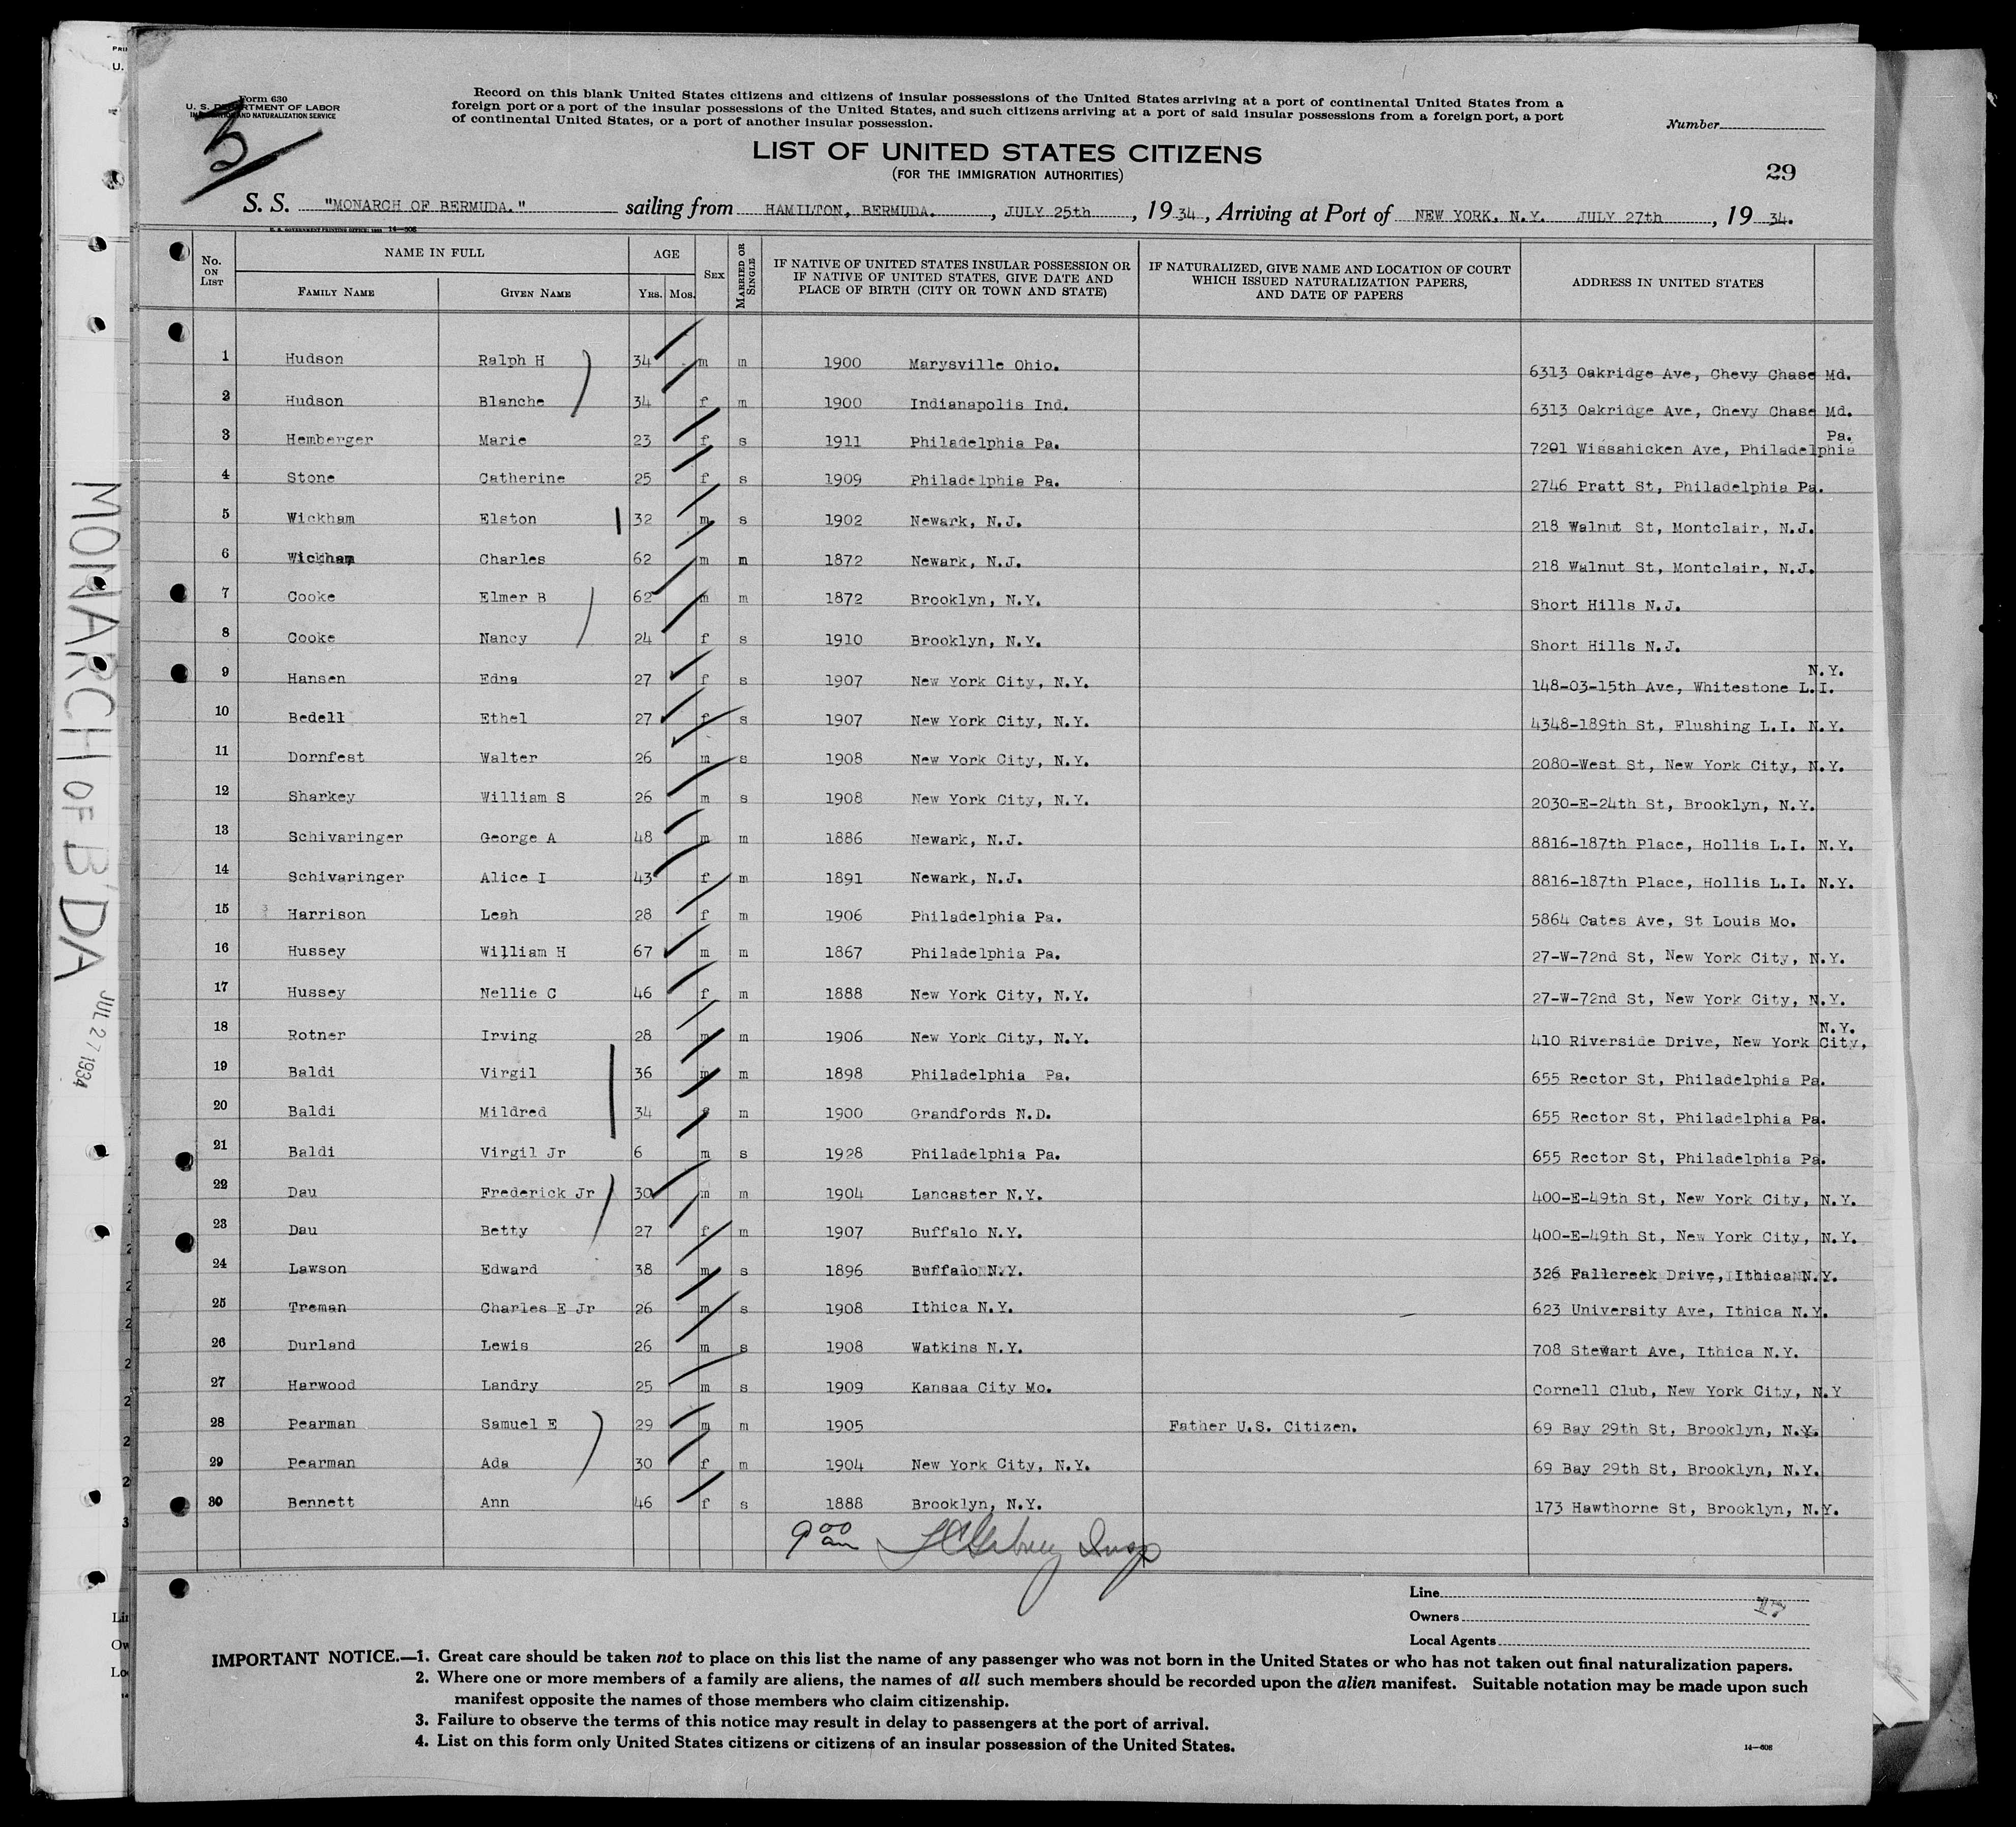 Form 630
U. S. DEPARTMENT OF LABOR
IMMIGRATION AND NATURALIZATION SERVICE
3
Record on this blank United States citizens and citizens of insular possessions of the United States arriving at a port of continental United States from a
foreign port or a port of the insular possessions of the United States, and such citizens arriving at a port of said insular possessions from a foreign port, a port
of continental United States, or a port of another insular possession.
Number
LIST OF UNITED STATES CITIZENS
(FOR THE IMMIGRATION AUTHORITIES)
29
S. S. "MONARCH OF BERMUDA." sailing from HAMILTON, BERMUDA. , JULY 25th , 19 34 , Arriving at Port of NEW YORK, N.Y. JULY 27th , 19 34.
U. S. GOVERNMENT PRINTING OFFICE: 14—508
No. ON LIST NAME IN FULL AGE SEX MARRIED OR SINGLE IF NATIVE OF UNITED STATES INSULAR POSSESSION OR IF NATIVE OF UNITED STATES, GIVE DATE AND PLACE OF BIRTH (CITY OR TOWN AND STATE) IF NATURALIZED, GIVE NAME AND LOCATION OF COURT WHICH ISSUED NATURALIZATION PAPERS, AND DATE OF PAPERS ADDRESS IN UNITED STATES
FAMILY NAME GIVEN NAME YRS. MOS.
1 Hudson Ralph H 34 m m 1900 Marysville Ohio. 6313 Oakridge Ave, Chevy Chase Md.
2 Hudson Blanche 34 f m 1900 Indianapolis Ind. 6313 Oakridge Ave, Chevy Chase Md.
3 Hemberger Marie 23 f s 1911 Philadelphia Pa. 7201 Wissahicken Ave, Philadelphia Pa.
4 Stone Catherine 25 f s 1909 Philadelphia Pa. 2746 Pratt St, Philadelphia Pa.
5 Wickham Elston 32 m s 1902 Newark, N.J. 218 Walnut St, Montclair, N.J.
6 Wickham Charles 62 m m 1872 Newark, N.J. 218 Walnut St, Montclair, N.J.
7 Cooke Elmer B 62 m m 1872 Brooklyn, N.Y. Short Hills N.J.
8 Cooke Nancy 24 f s 1910 Brooklyn, N.Y. Short Hills N.J.
9 Hansen Edna 27 f s 1907 New York City, N.Y. 148-03-15th Ave, Whitestone L.I. N.Y.
10 Bedell Ethel 27 f s 1907 New York City, N.Y. 4348-189th St, Flushing L.I. N.Y.
11 Dornfest Walter 26 m s 1908 New York City, N.Y. 2080-West St, New York City, N.Y.
12 Sharkey William S 26 m s 1908 New York City, N.Y. 2030-E-24th St, Brooklyn, N.Y.
13 Schivaringer George A 48 m m 1886 Newark, N.J. 8816-187th Place, Hollis L.I. N.Y.
14 Schivaringer Alice I 43 f m 1891 Newark, N.J. 8816-187th Place, Hollis L.I. N.Y.
15 Harrison Leah 28 f m 1906 Philadelphia Pa. 5864 Cates Ave, St Louis Mo.
16 Hussey William H 67 m m 1867 Philadelphia Pa. 27-W-72nd St, New York City, N.Y.
17 Hussey Nellie C 46 f m 1888 New York City, N.Y. 27-W-72nd St, New York City, N.Y.
18 Rotner Irving 28 m m 1906 New York City, N.Y. 410 Riverside Drive, New York City, N.Y.
19 Baldi Virgil 36 m m 1898 Philadelphia Pa. 655 Rector St, Philadelphia Pa.
20 Baldi Mildred 34 f m 1900 Grandfords N.D. 655 Rector St, Philadelphia Pa.
21 Baldi Virgil Jr 6 m s 1928 Philadelphia Pa. 655 Rector St, Philadelphia Pa.
22 Dau Frederick Jr 30 m m 1904 Lancaster N.Y. 400-E-49th St, New York City, N.Y.
23 Dau Betty 27 f m 1907 Buffalo N.Y. 400-E-49th St, New York City, N.Y.
24 Lawson Edward 38 m s 1896 Buffalo N.Y. 326 Fallcreek Drive, Ithica N.Y.
25 Treman Charles E Jr 26 m s 1908 Ithica N.Y. 623 University Ave, Ithica N.Y.
26 Durland Lewis 26 m s 1908 Watkins N.Y. 708 Stewart Ave, Ithica N.Y.
27 Harwood Landry 25 m s 1909 Kansaa City Mo. Cornell Club, New York City, N.Y
28 Pearman Samuel E 29 m m 1905 Father U.S. Citizen. 69 Bay 29th St, Brooklyn, N.Y.
29 Pearman Ada 30 f m 1904 New York City, N.Y. 69 Bay 29th St, Brooklyn, N.Y.
30 Bennett Ann 46 f s 1888 Brooklyn, N.Y. 173 Hawthorne St, Brooklyn, N.Y.
9 00 am Insp
Line
Owners 17
Local Agents
IMPORTANT NOTICE.—1. Great care should be taken not to place on this list the name of any passenger who was not born in the United States or who has not taken out final naturalization papers.
2. Where one or more members of a family are aliens, the names of all such members should be recorded upon the alien manifest. Suitable notation may be made upon such
manifest opposite the names of those members who claim citizenship.
3. Failure to observe the terms of this notice may result in delay to passengers at the port of arrival.
4. List on this form only United States citizens or citizens of an insular possession of the United States.
14—508
MONARCH OF B'DA JUL 27 1934